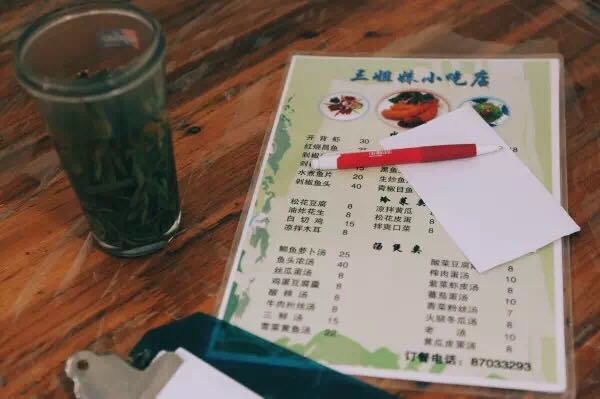 三姐妹小吃店
开背虾 30
红烧昌鱼
剁椒
水煮鱼片
剁椒鱼头
黑鱼
生炒鱼
青椒目鱼
冷菜类
松花豆腐 8
油炸花生 8
白切鸡 15
凉拌木耳 8
凉拌黄瓜
松花皮蛋
拌爽口菜
汤煲类
鲫鱼萝卜汤 25
鱼头浓汤 40
丝瓜蛋汤 8
鸡蛋豆腐羹 8
酸辣汤 8
牛肉粉丝汤 8
三鲜汤 15
雪菜黄鱼汤 22
酸菜豆腐 8
榨肉蛋汤 8
紫菜虾皮汤 8
蕃茄蛋汤 8
青菜粉丝汤 7
火腿冬瓜汤 8
老汤 10
黄瓜皮蛋汤 8
订餐电话：87033293